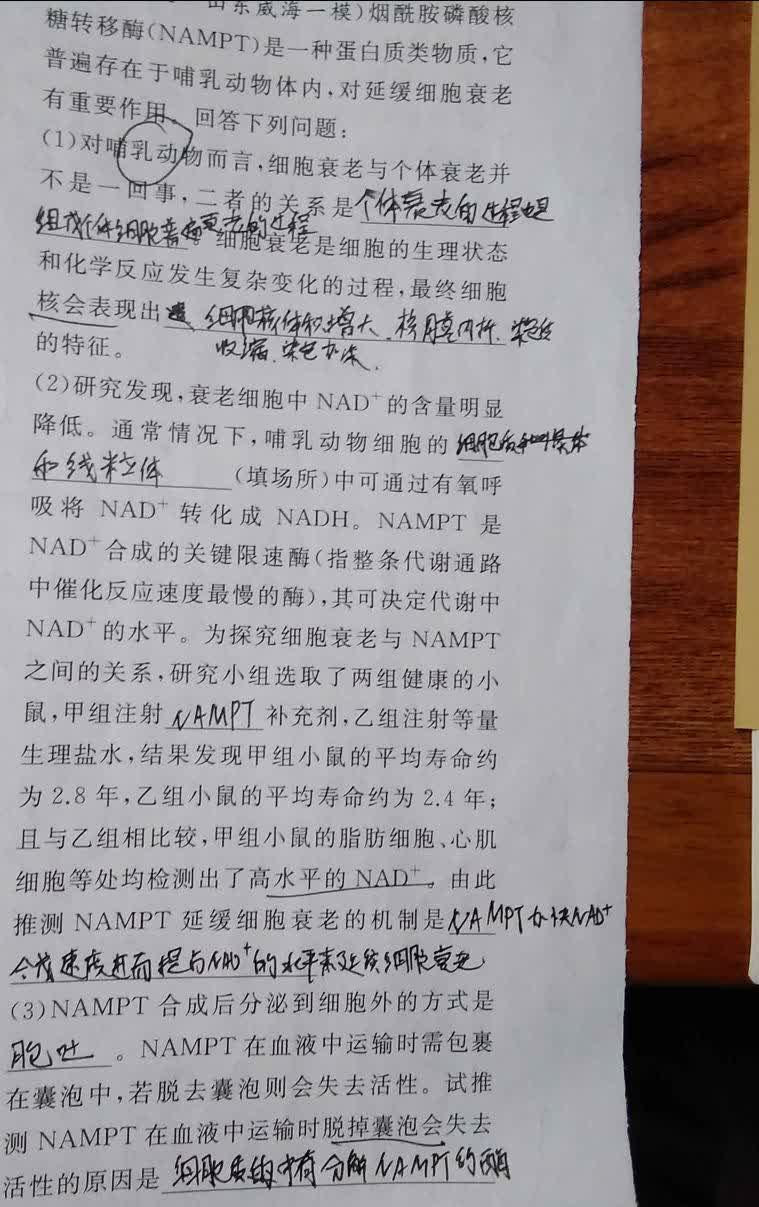 山东威海一模)烟酰胺磷酸核
糖转移酶(NAMPT)是一种蛋白质类物质,它
普遍存在于哺乳动物体内,对延缓细胞衰老
有重要作用。回答下列问题:
(1)对哺乳动物而言,细胞衰老与个体衰老并
不是一回事,二者的关系是个体衰老的过程也是
组成个体细胞普遍衰老的过程 细胞衰老是细胞的生理状态
和化学反应发生复杂变化的过程,最终细胞
核会表现出 细胞核体积增大、核膜内折、染色质
的特征。 收缩、染色加深.
(2)研究发现,衰老细胞中 NAD⁺的含量明显
降低。通常情况下,哺乳动物细胞的 细胞质基质
和线粒体 (填场所)中可通过有氧呼
吸将 NAD⁺ 转化成 NADH。NAMPT 是
NAD⁺合成的关键限速酶(指整条代谢通路
中催化反应速度最慢的酶),其可决定代谢中
NAD⁺的水平。为探究细胞衰老与 NAMPT
之间的关系,研究小组选取了两组健康的小
鼠,甲组注射 NAMPT 补充剂,乙组注射等量
生理盐水,结果发现甲组小鼠的平均寿命约
为 2.8 年,乙组小鼠的平均寿命约为 2.4 年;
且与乙组相比较,甲组小鼠的脂肪细胞、心肌
细胞等处均检测出了高水平的 NAD⁺。由此
推测 NAMPT 延缓细胞衰老的机制是 NAMPT加快NAD⁺
合成速度进而提高NAD⁺的水平来延缓细胞衰老
(3)NAMPT 合成后分泌到细胞外的方式是
胞吐 。NAMPT 在血液中运输时需包裹
在囊泡中,若脱去囊泡则会失去活性。试推
测 NAMPT 在血液中运输时脱掉囊泡会失去
活性的原因是 中有分解NAMPT的酶